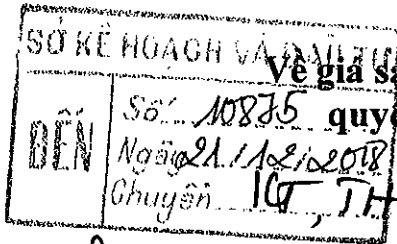 SỞ KẾ HOẠCH VÀ ĐẦU TƯ
Về giá
ĐẾN
Số: 10875
Ngày 21/12/2018
Chuyển KT, TH